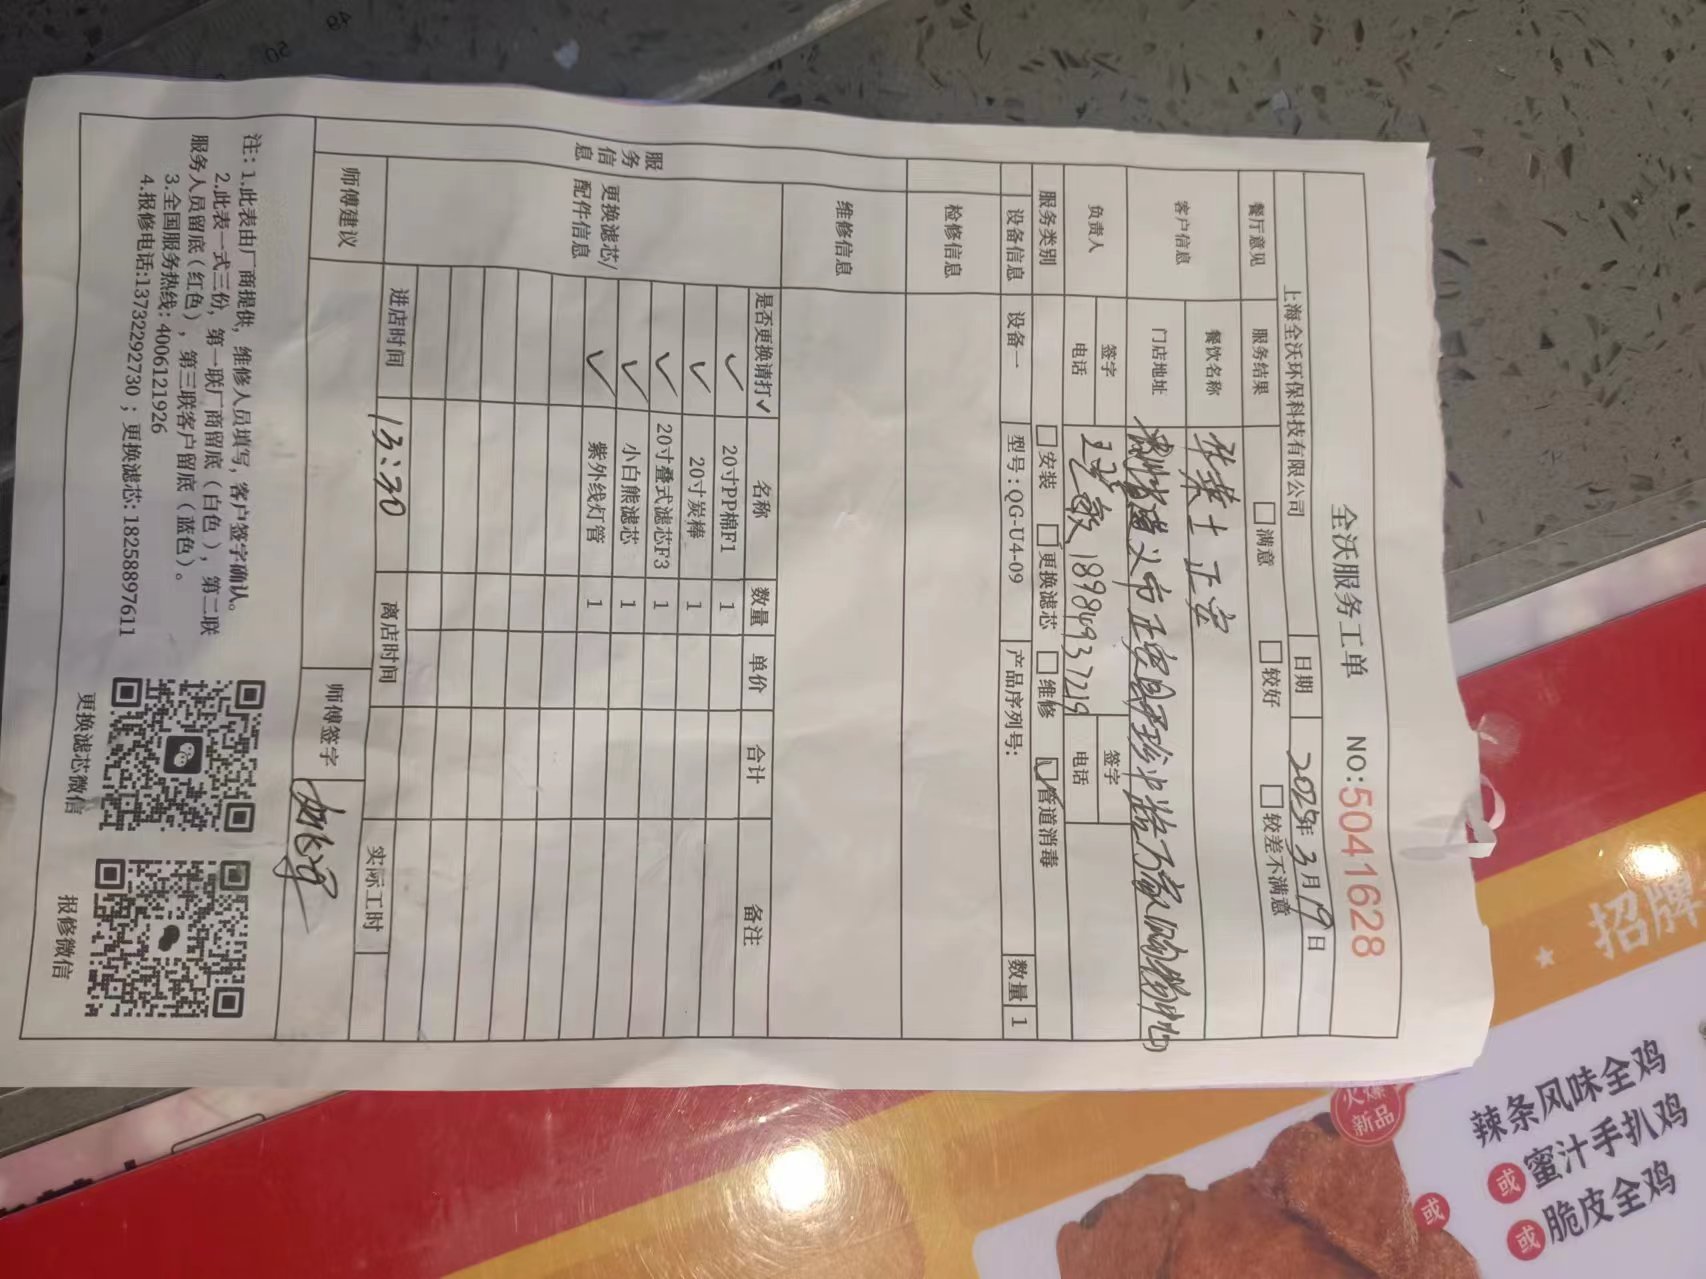 全沃服务工单 NO:5041628
上海全沃环保科技有限公司 日期 2025年3月19日
餐厅意见 服务结果 □满意 □较好 □较差不满意
客户信息 餐饮名称 华莱士 正安
门店地址 贵州省遵义市正安县 万家购物中心
负责人 签字 签字
电话 18984937219 电话
服务类别 □安装 □更换滤芯 □维修 ☑管道消毒
设备信息 设备一 型号:QG-U4-09 产品序列号: 数量 1
检修信息
服务信息
维修信息
更换滤芯/配件信息
是否更换请打✓ 名称 数量 单价 合计 备注
✓ 20寸PP棉F1 1
✓ 20寸炭棒 1
✓ 20寸叠式滤芯F3 1
✓ 小白熊滤芯 1
✓ 紫外线灯管 1
进店时间 13:30 离店时间 实际工时
师傅建议 师傅签字
注:1.此表由厂商提供,维修人员填写,客户签字确认。
2.此表一式三份,第一联厂商留底(白色),第二联
服务人员留底(红色),第三联客户留底(蓝色)。
3.全国服务热线:4006121926
4.报修电话:13732292730;更换滤芯:18258897611
更换滤芯微信 报修微信
招牌
火爆
新品
辣条风味全鸡
或 蜜汁手扒鸡
或 脆皮全鸡
或
49
50